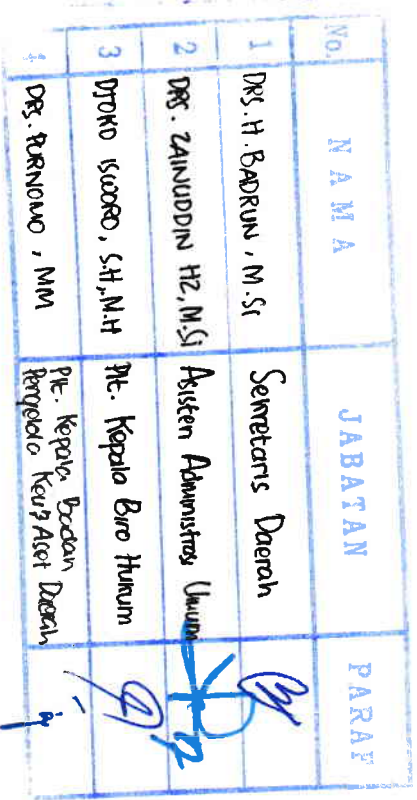 No. NAMA JABATAN PARAF
1 DRS. H. BADRUN, M.Si Sekretaris Daerah
2 DRS. ZAINUDDIN HZ, M.Si Asisten Administrasi Umum
3 DJOKO ISWORO, S.H, M.H Plt. Kepala Biro Hukum
4 DRS. PURNOMO, MM Plt. Kepala Badan
Pengelola Keu & Aset Daerah